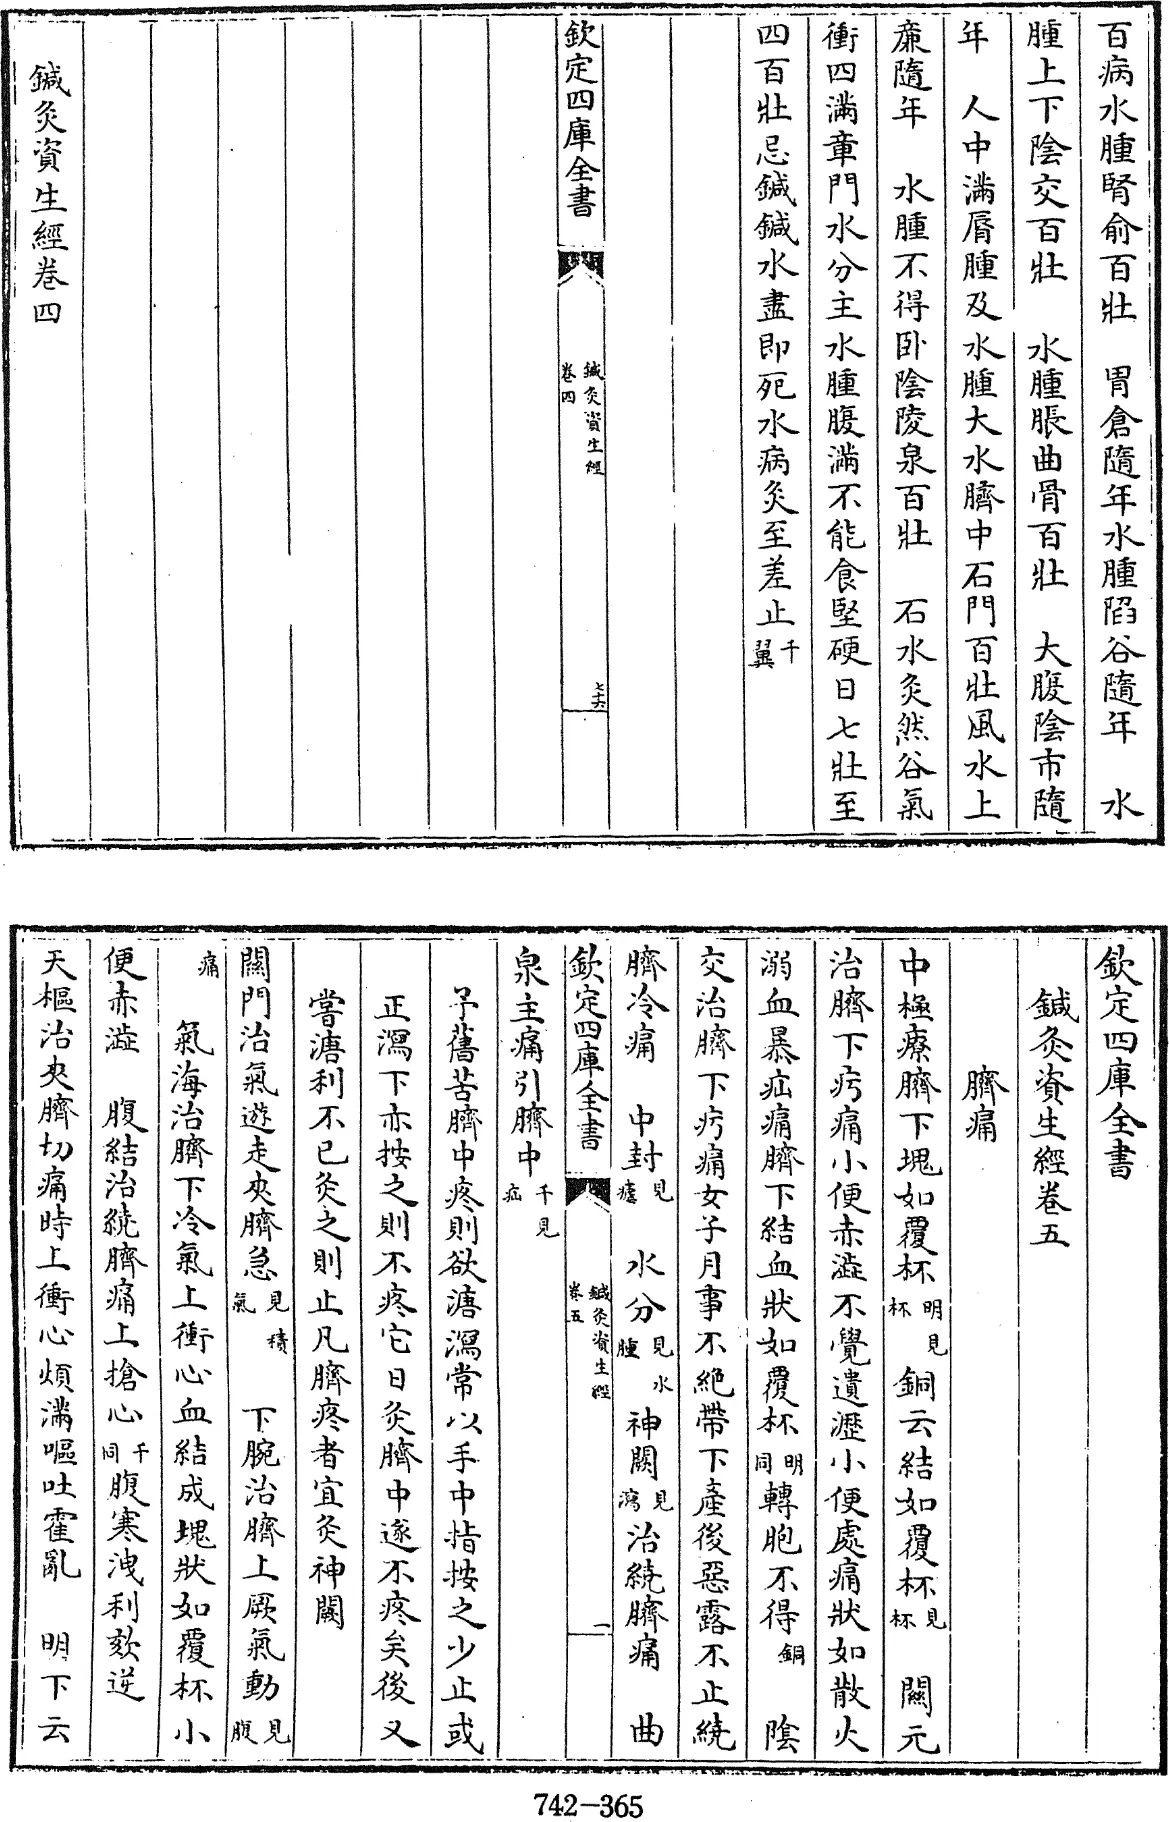 百病水腫腎俞百壯　胃倉隨年水腫陷谷隨年　水
腫上下陰交百壯　水腫脹曲骨百壯　大腹陰市隨
年　人中滿脣腫及水腫大水臍中石門百壯風水上
廉隨年　水腫不得卧陰陵泉百壯　石水灸然谷氣
衝四滿章門水分主水腫腹滿不能食堅硬日七壯至
四百壯忌鍼鍼水盡即死水病灸至差止千翼
欽定四庫全書
鍼灸資生經
卷四
七十六
鍼灸資生經卷四
欽定四庫全書
鍼灸資生經卷五
臍痛
中極療臍下塊如覆杯明見杯　銅云結如覆杯見杯　關元
治臍下疠痛小便赤澁不覺遺瀝小便處痛狀如散火
溺血暴疝痛臍下結血狀如覆杯明同轉胞不得銅　陰
交治臍下疠痛女子月事不絶帶下產後惡露不止繞
臍冷痛　中封見瘧　水分見水腫　神闕見瀉治繞臍痛　曲
欽定四庫全書
鍼灸資生經
卷五
一
泉主痛引臍中千見疝
予舊苦臍中疼則欲溏瀉常以手中指按之少止或
正瀉下亦按之則不疼它日灸臍中遂不疼矣後又
嘗溏利不已灸之則止凡臍疼者宜灸神闕
關門治氣遊走夾臍急見積氣　下腕治臍上厥氣動見腹
痛　氣海治臍下冷氣上衝心血結成塊狀如覆杯小
便赤澁　腹結治繞臍痛上搶心千同腹寒洩利欬逆
天樞治夾臍切痛時上衝心煩滿嘔吐霍亂　明下云
742-365